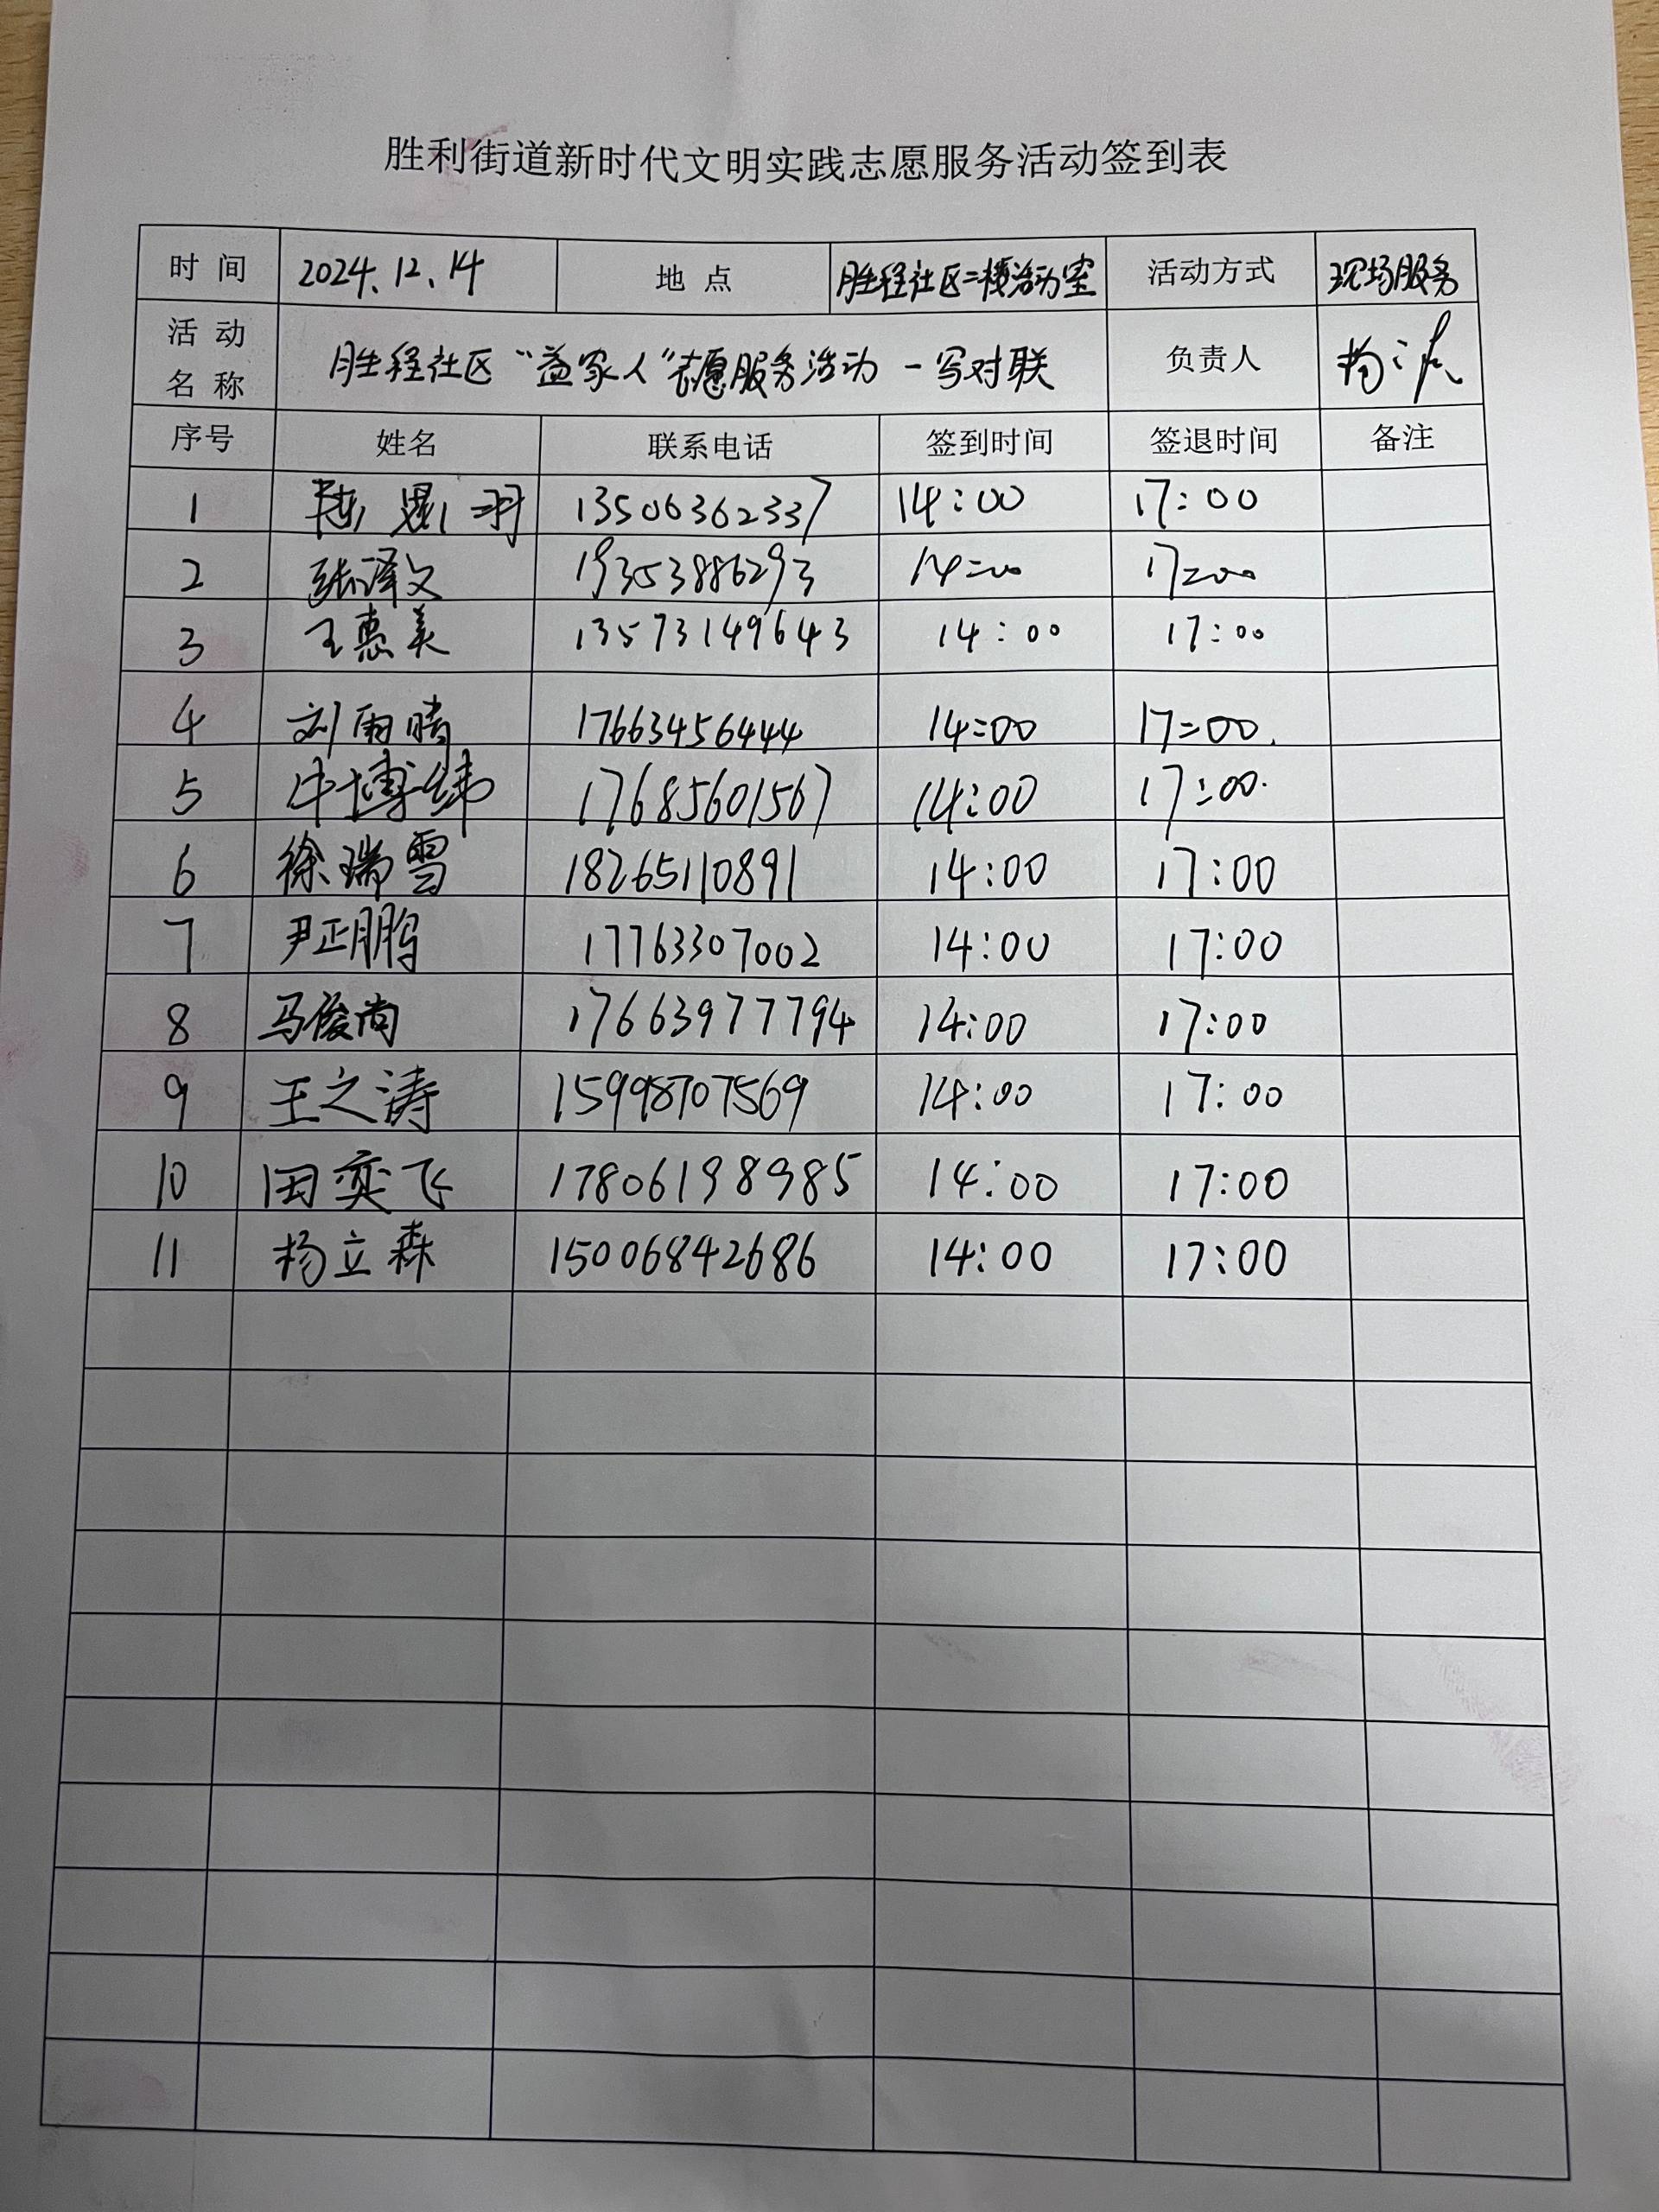 胜利街道新时代文明实践志愿服务活动签到表
时间 2024.12.14 地点 胜程社区二楼活动室 活动方式 现场服务
活动名称 胜程社区“益家人”志愿服务活动-写对联 负责人
序号 姓名 联系电话 签到时间 签退时间 备注
1 13506362337 14:00 17:00
2 张泽文 19353886293 14:00 17:00
3 王惠美 13573149643 14:00 17:00
4 刘雨晴 17663456444 14:00 17:00
5 牛博纬 17685601567 14:00 17:00
6 徐瑞雪 18265110891 14:00 17:00
7 尹正鹏 17763307002 14:00 17:00
8 马俊尚 17663977794 14:00 17:00
9 王之涛 15998707569 14:00 17:00
10 田奕飞 17806198985 14:00 17:00
11 杨立森 15006842686 14:00 17:00